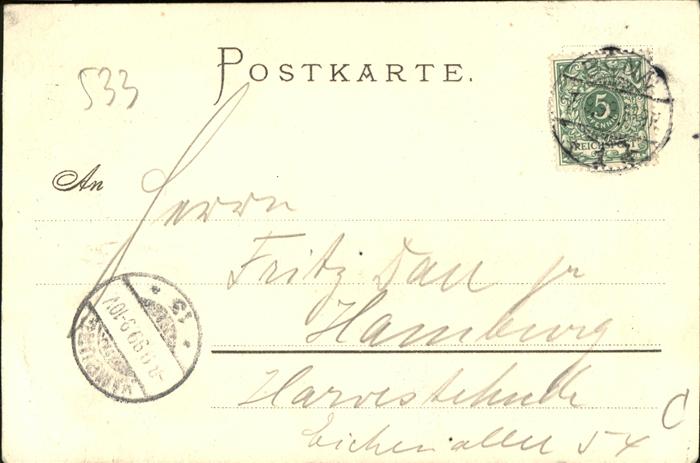 533
POSTKARTE.
BONN
5
PFENNIG
REICHSPOST
An
Herrn
Fritz Dall jr
Hamburg
Harvestehude
Eichenallee 54
HAMBURG
9-10V
13
C